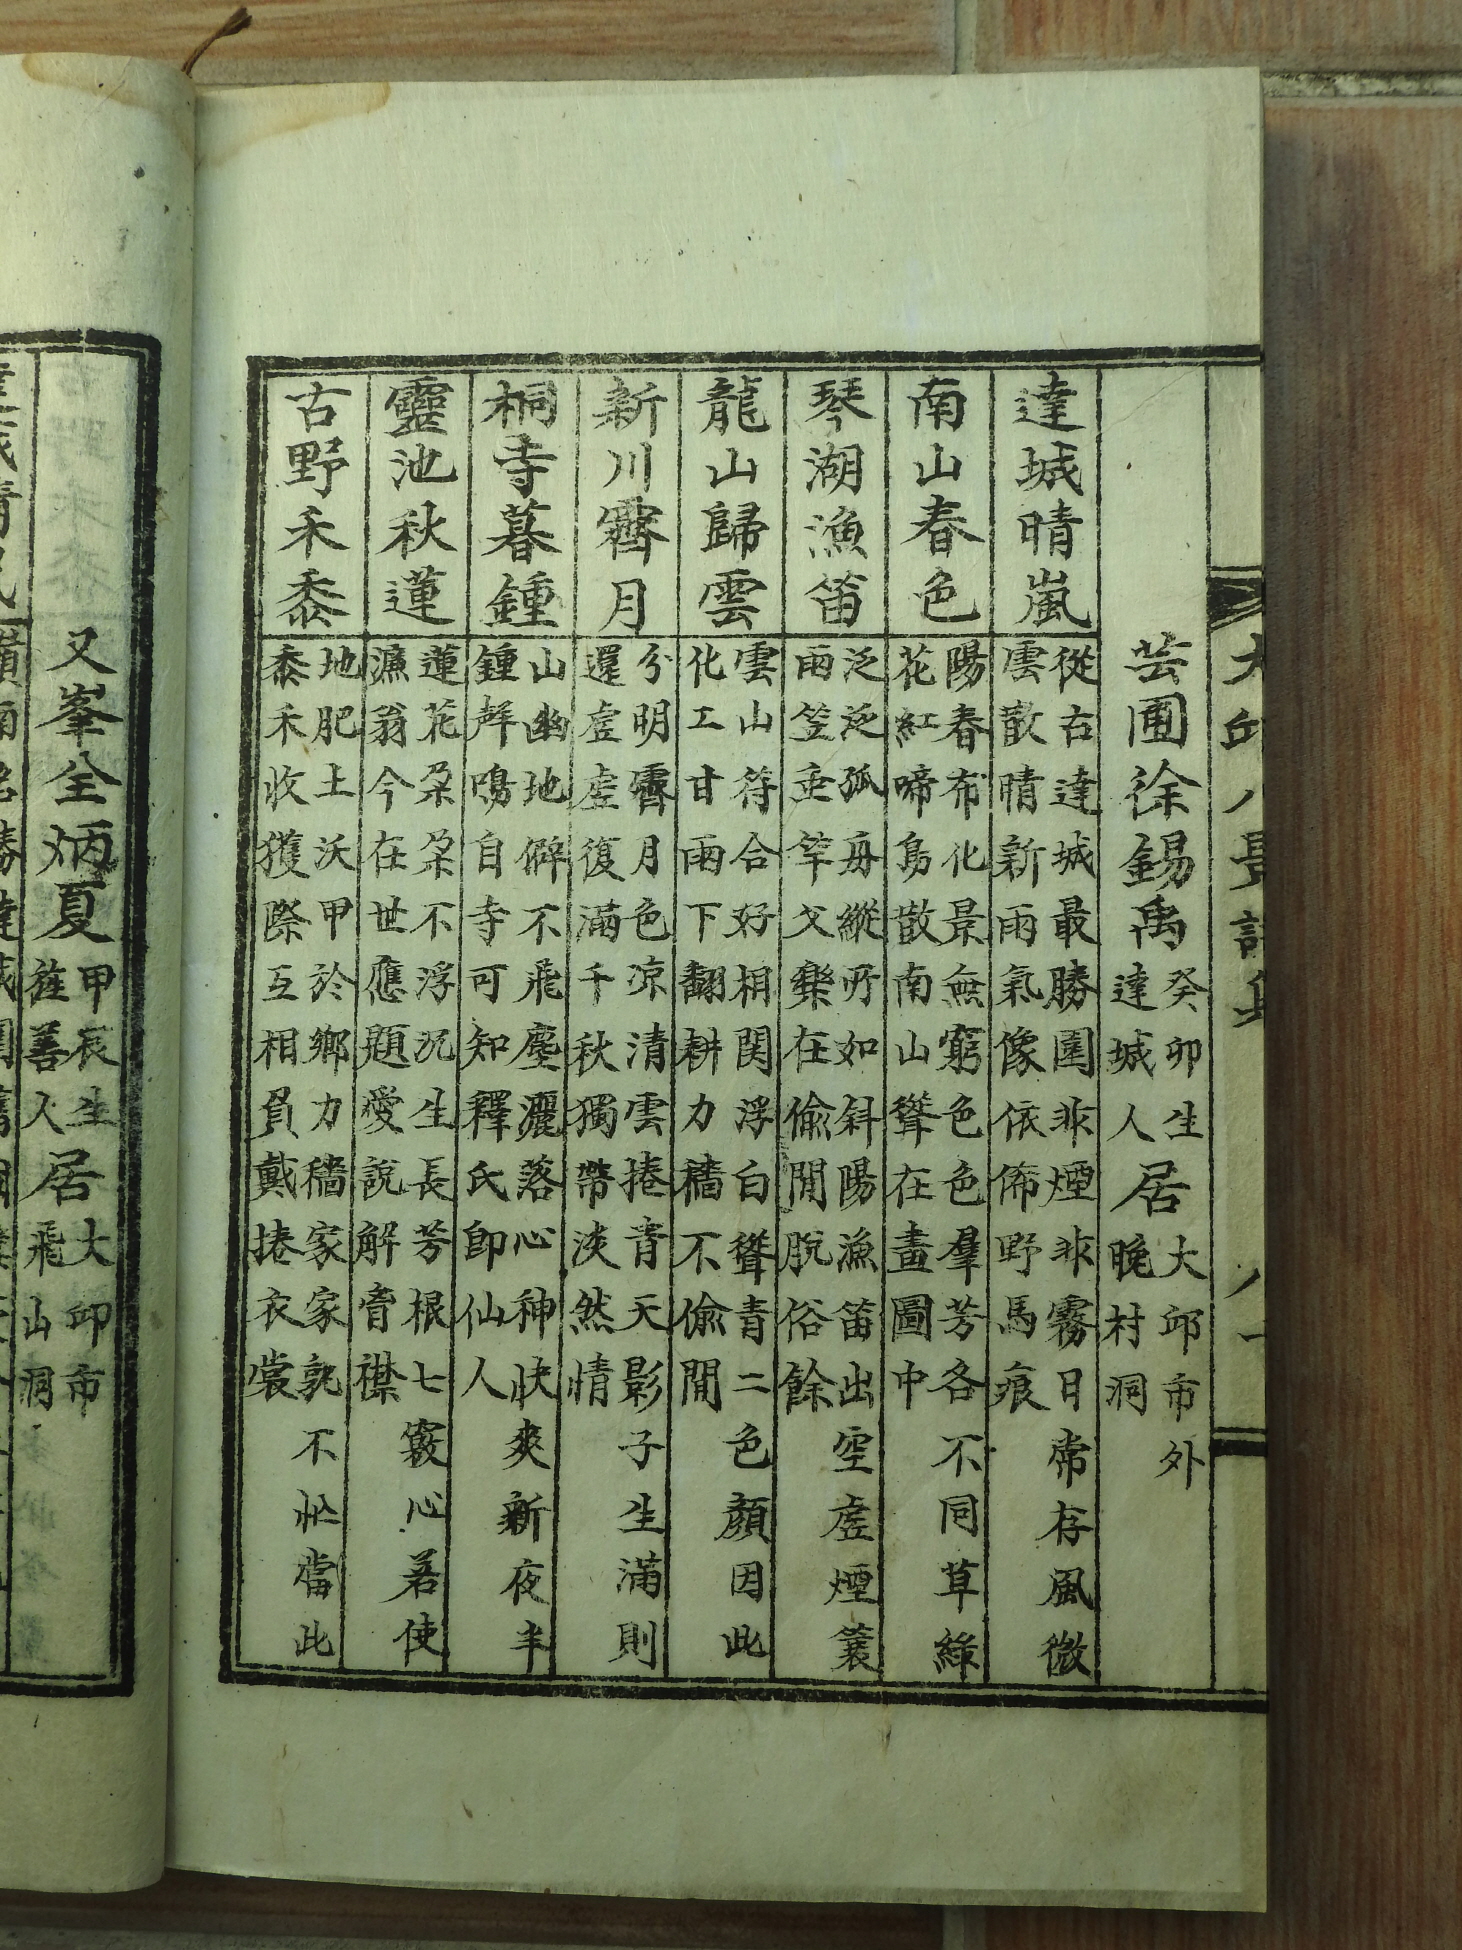 大邱八景詩集
八十
芸圃徐錫禹 癸卯生 達城人 居 大邱市外 晚村洞
達城晴嵐
從古達城最勝園非煙非霧日常存風微
雲散晴新雨氣像依俙野馬痕
南山春色
陽春布化景無窮色色羣芳各不同草綠
花紅啼鳥散南山聳在畫圖中
琴湖漁笛
泛泛孤舟縱所如斜陽漁笛出空虛煙簑
雨笠垂竿父樂在偸閒脫俗餘
龍山歸雲
雲山符合好相関浮白聳青二色顏因此
化工甘雨下翻耕力穡不偸閒
新川霽月
分明霽月色凉清雲捲青天影子生滿則
還虛虛復滿千秋獨帶淡然情
桐寺暮鍾
山幽地僻不飛塵灑落心神快爽新夜半
鍾聲鳴自寺可知釋氏卽仙人
靈池秋蓮
蓮花朶朶不浮沉生長芳根七竅心若使
濂翁今在世應題愛說解胷襟
古野禾黍
地肥土沃甲於鄉力穡家家孰不忙當此
黍禾收獲際互相負戴捲衣裳
又峯全炳夏 甲辰生 旌善人 居 大邱市 飛山洞